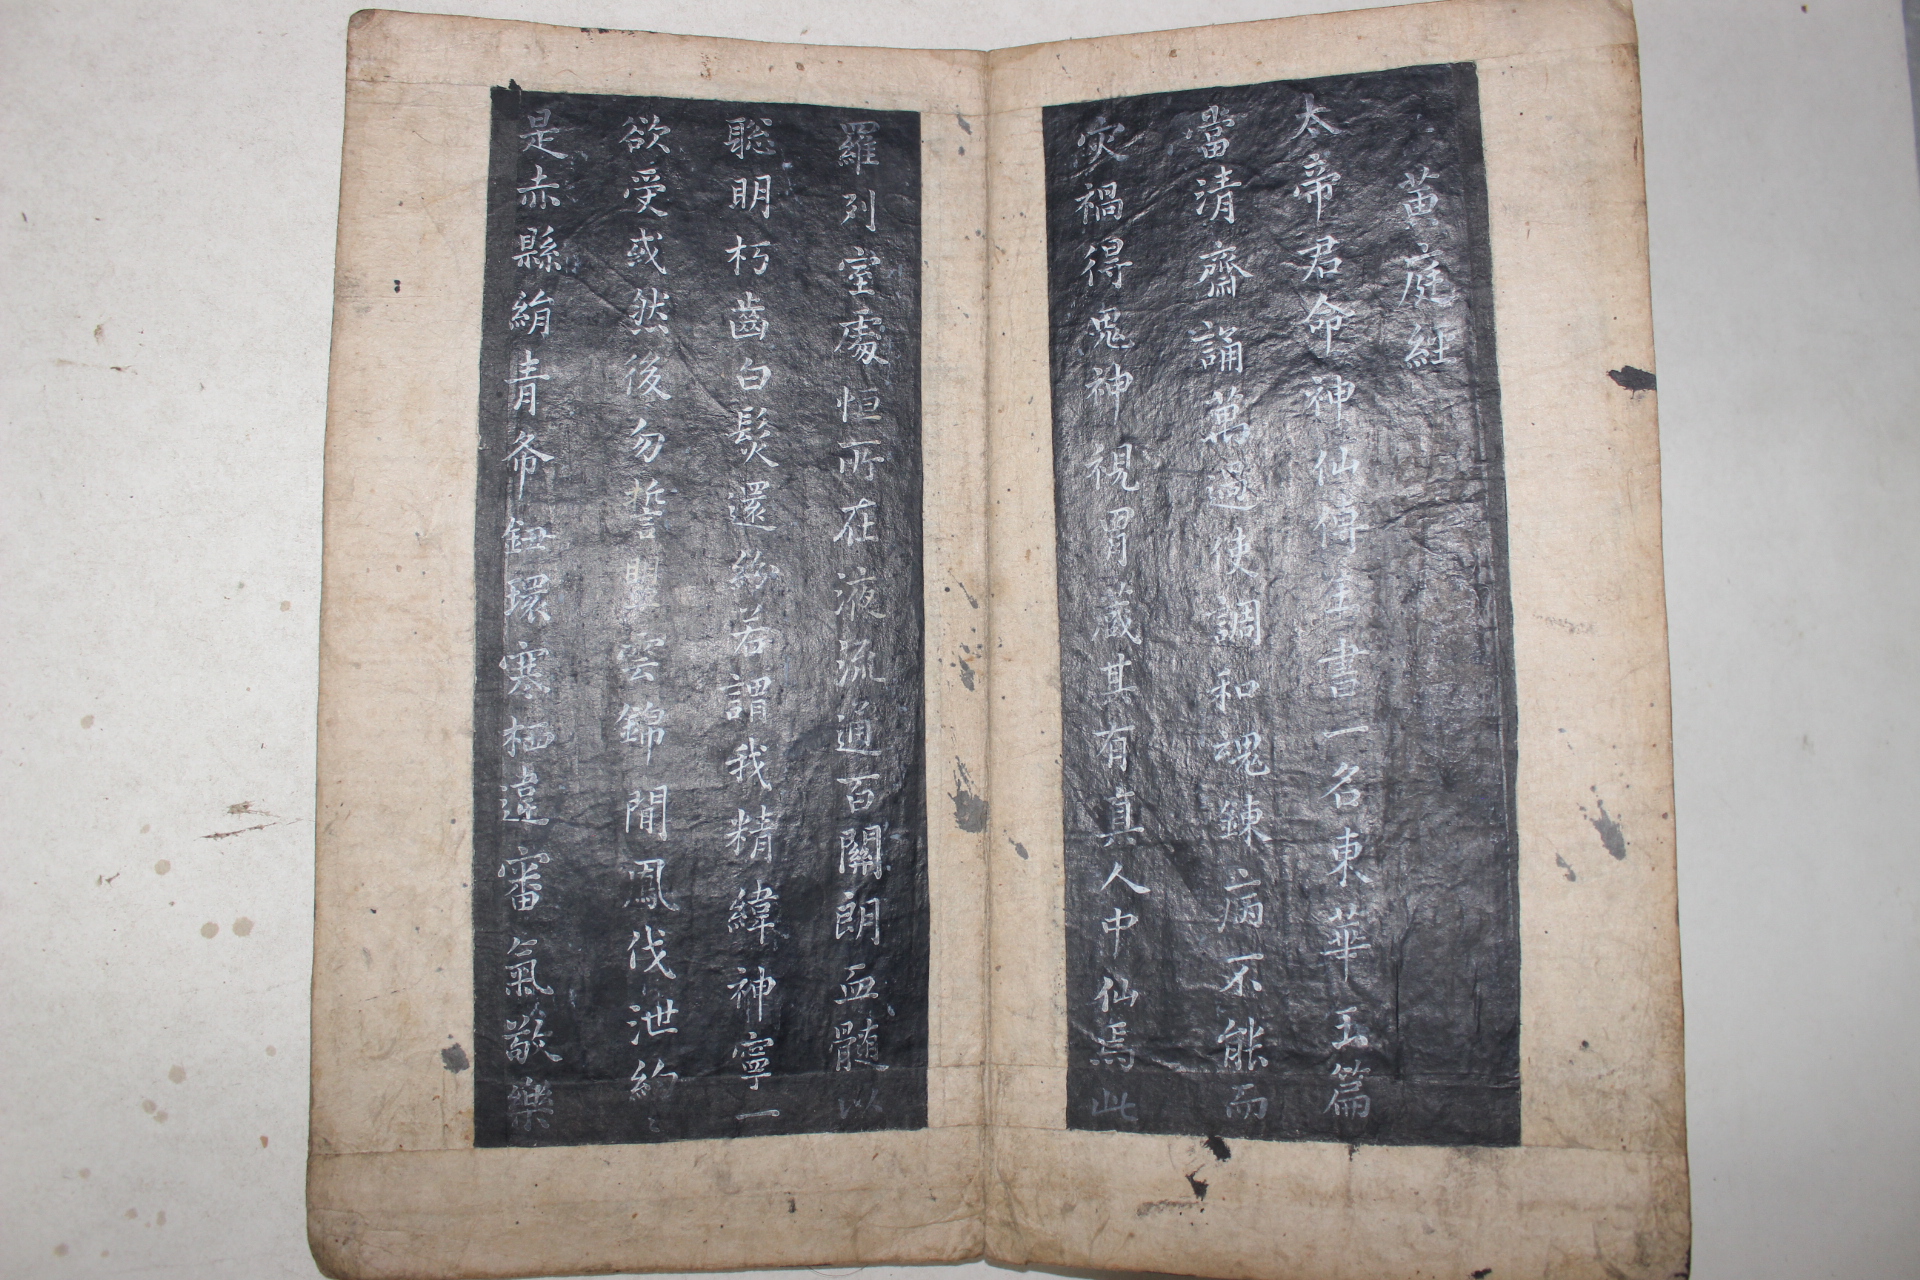 黄庭経
太帝君命神仙傳圭書一名東華玉篇
當清齋誦萬過使調和魂錬病不能而
灾禍得鬼神視胃蔵其有真人中仙焉此
羅列室處恒所在液流通百關朗血髄以
聡明朽齒白髮還絲若謂我精緯神寧一
欲受或然後勿誓盟雲錦聞鳳伐泄約
是赤縣絹青帋鈕環寒栖違審氣敬樂